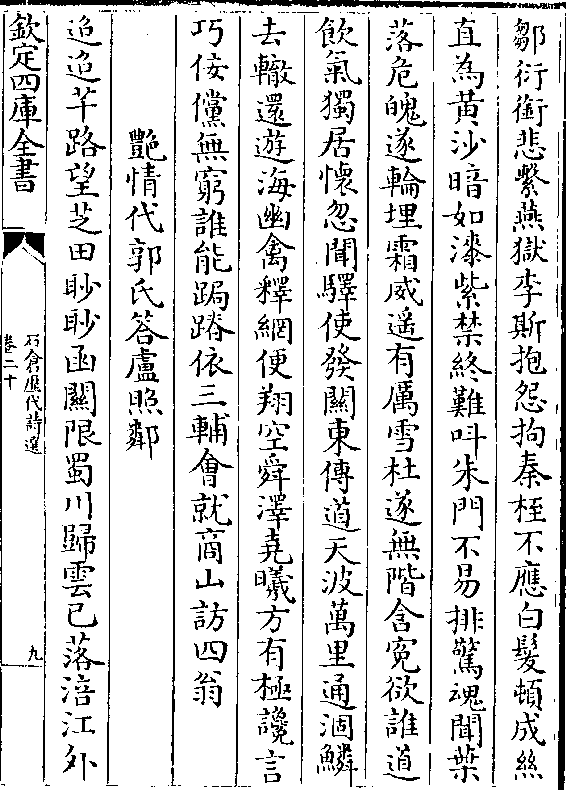 鄒衍銜悲繫燕獄李斯抱怨拘秦桎不應白髮頓成絲
直為黃沙暗如漆紫禁終難叫朱門不易排驚魂聞葉
落危魄逐輪埋霜威遥有厲雪杜遂無階含寃欲誰道
飲氣獨居懷忽聞驛使發關東傳道天波萬里通涸鱗
去轍還遊海幽禽釋網便翔空舜澤堯曦方有極讒言
巧佞儻無窮誰能跼蹐依三輔會就商山訪四翁
艷情代郭氏答盧照鄰
迢迢芊路望芝田眇眇函關限蜀川歸雲已落涪江外
欽定四庫全書
石倉歷代詩選
卷二十
九